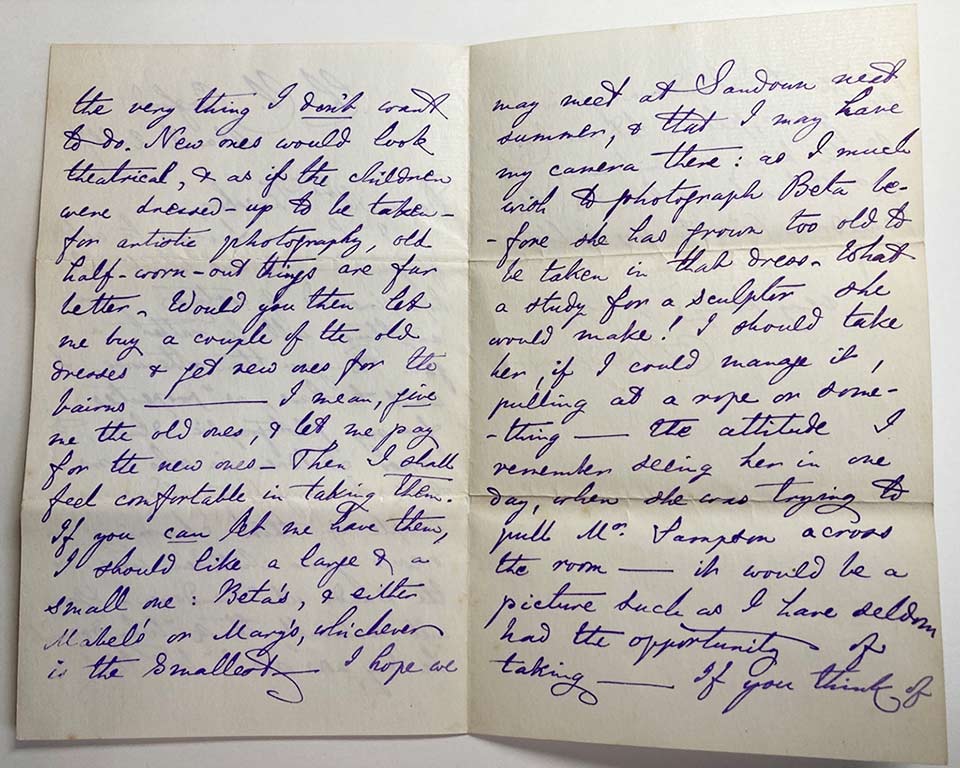 the very thing I don't want
to do. New ones would look
theatrical, & as if the children
were dressed-up to be taken—
for artistic photography, old
half-worn-out things are far
better. Would you then let
me buy a couple of the old
dresses & get new ones for the
bairns ——— I mean, give
me the old ones, & let me pay
for the new ones— Then I shall
feel comfortable in taking them.
If you can let me have them,
I should like a large & a
small one: Beta's, & either
Mabel's or Mary's, whichever
is the smallest— I hope we
may meet at Sandown next
summer, & that I may have
my camera there: as I much
wish to photograph Beta be-
-fore she has grown too old to
be taken in that dress. What
a study for a sculptor she
would make! I should take
her, if I could manage it,
pulling at a rope or some-
-thing — the attitude I
remember seeing her in one
day, when she was trying to
pull Mr. Sampson across
the room — it would be a
picture such as I have seldom
had the opportunity of
taking — If you think of